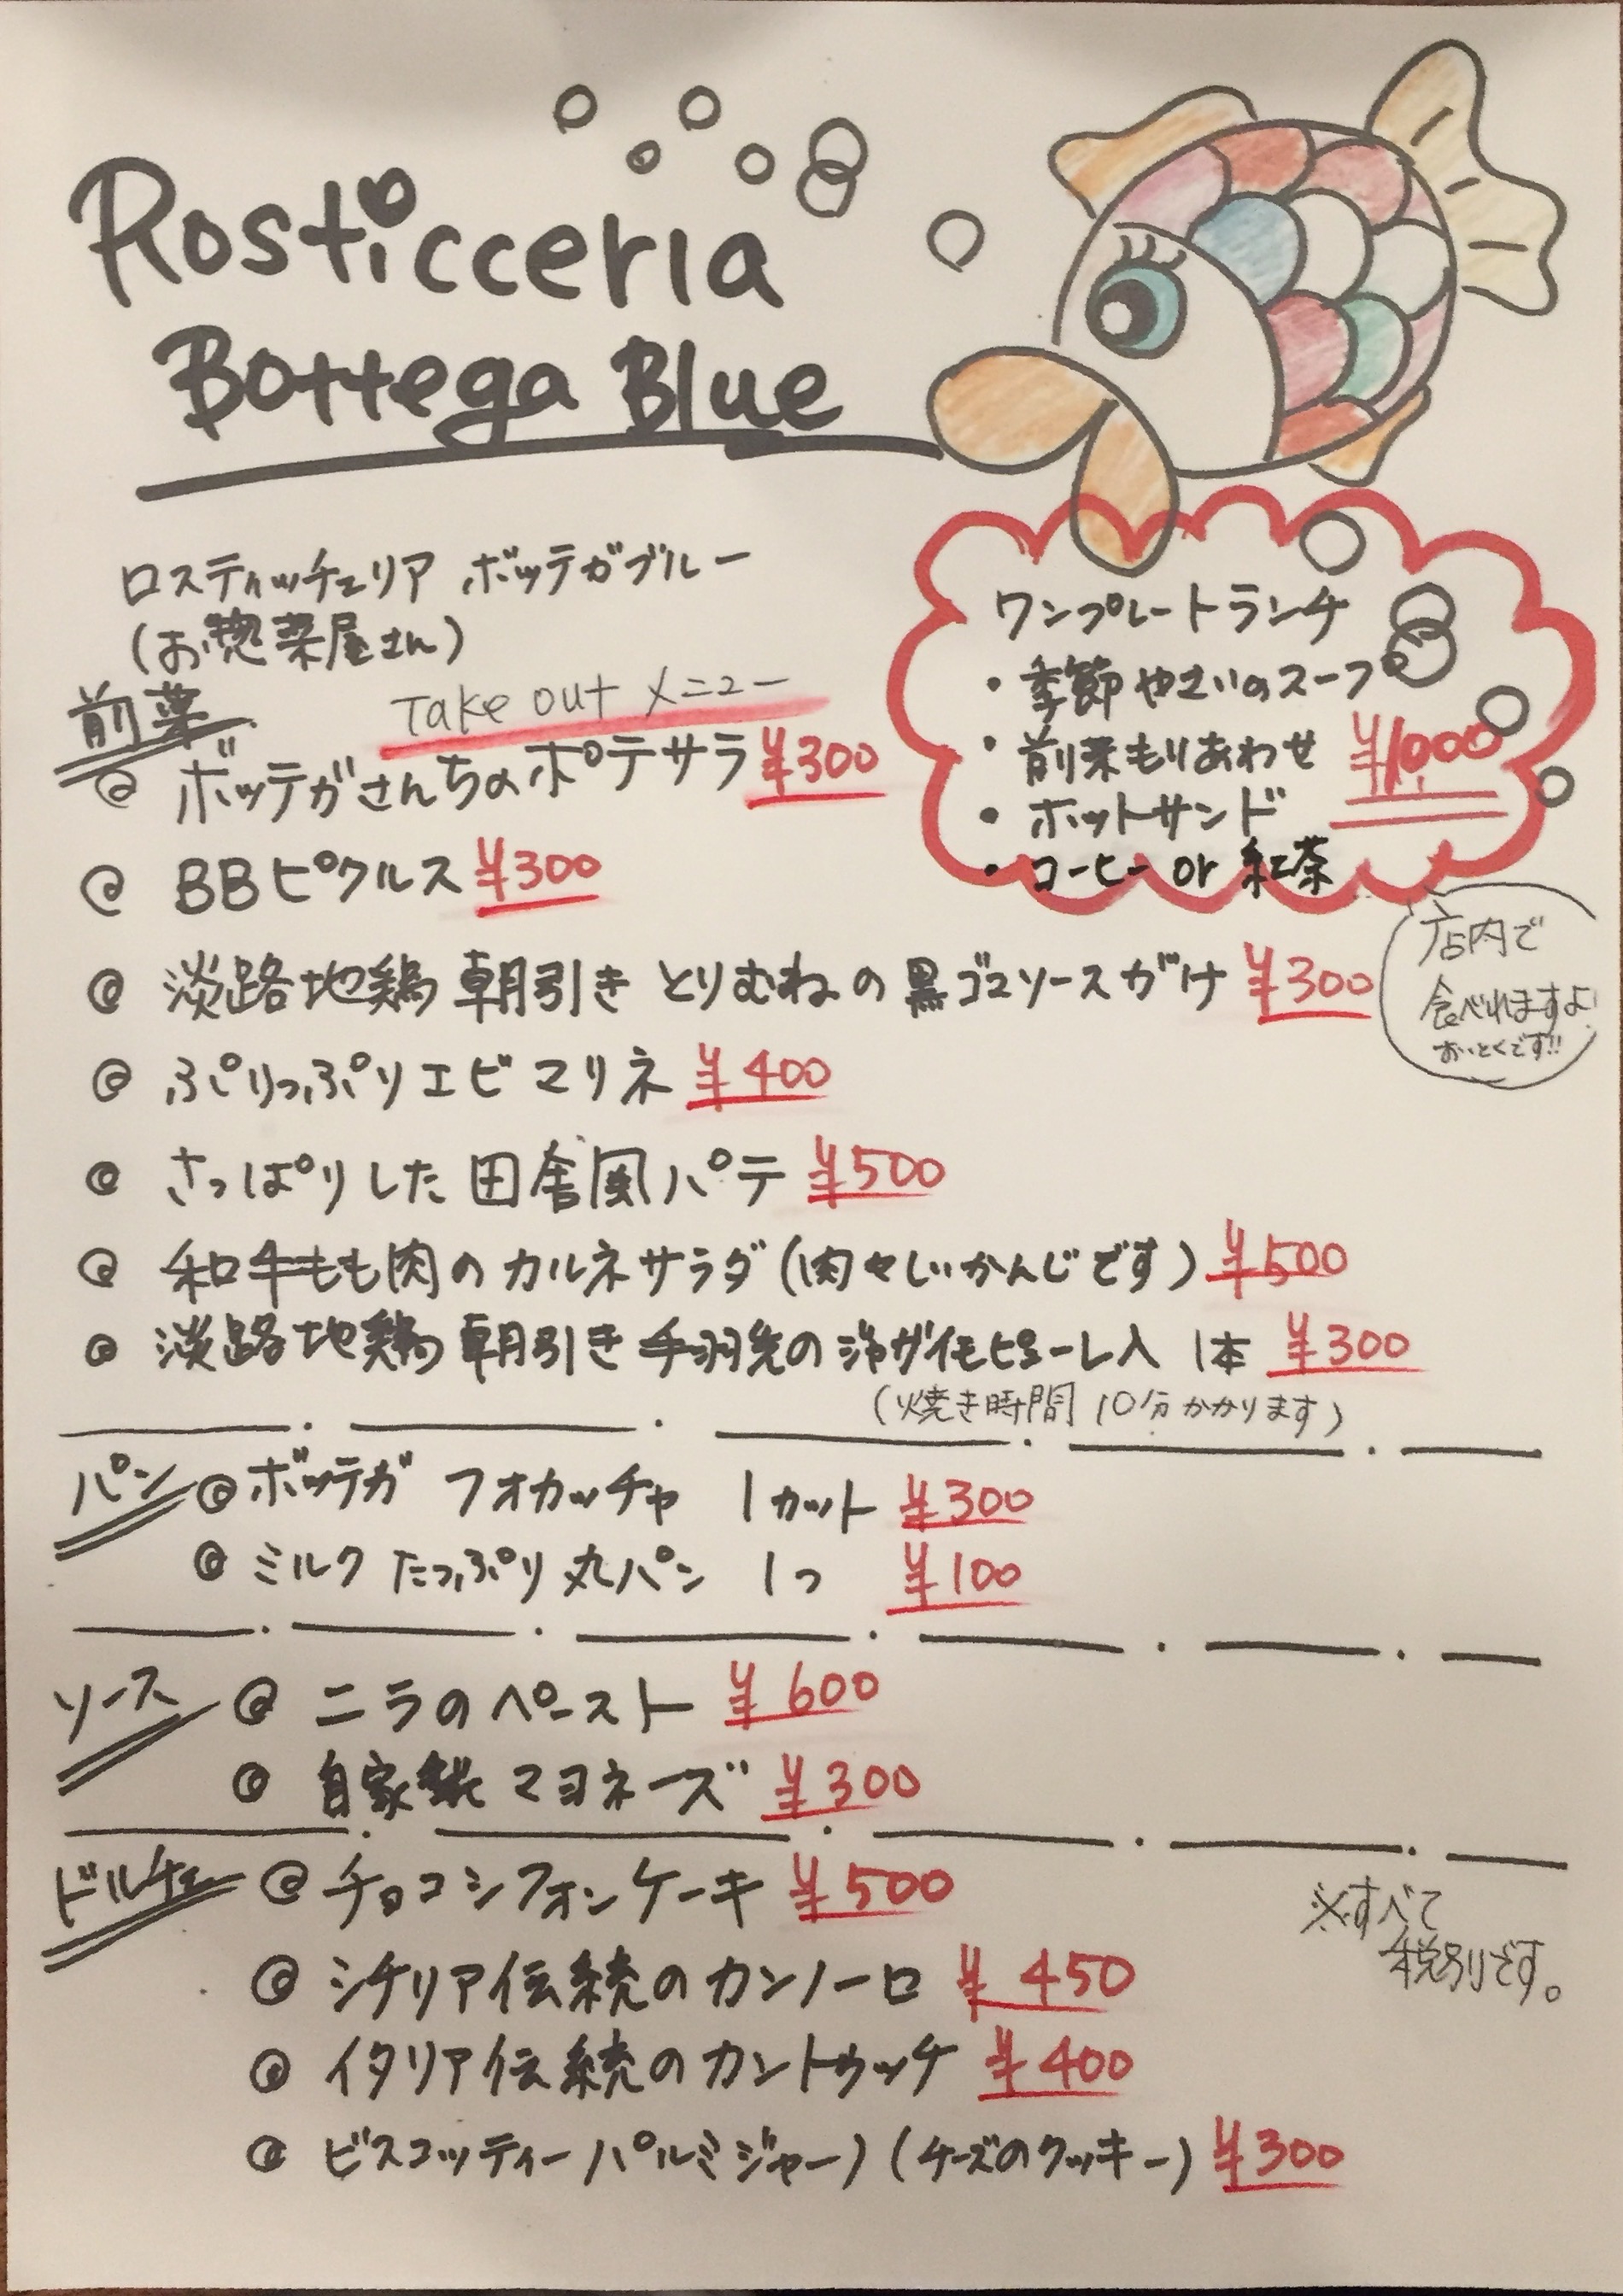 Rosticceria
Bottega Blue
ロスティッチェリア ボッテガブルー
(お惣菜屋さん)
Take out メニュー
前菜
ボッテガさんちのポテサラ ¥300
BBピクルス ¥300
淡路地鶏 朝引き とりむねの黒ゴマソースがけ ¥300
ぷりっぷりエビマリネ ¥400
さっぱりした田舎風パテ ¥500
和牛もも肉のカルネサラダ(肉々しいかんじです) ¥500
淡路地鶏 朝引き 手羽先のジャガイモピューレ入 1本 ¥300
(焼き時間 10分かかります)
ワンプレートランチ
・季節やさいのスープ
・前菜もりあわせ ¥1,000
・ホットサンド
・コーヒー or 紅茶
店内で
食べれますよ
おいとくです!!
パン
ボッテガ フォカッチャ 1カット ¥300
ミルクたっぷり丸パン 1つ ¥100
ソース
ニラのペースト ¥600
自家製マヨネーズ ¥300
ドルチェ
チョコシフォンケーキ ¥500
シチリア伝統のカンノーロ ¥450
イタリア伝統のカントゥッチ ¥400
ビスコッティーパルミジャーノ(チーズのクッキー) ¥300
※すべて
税別です。